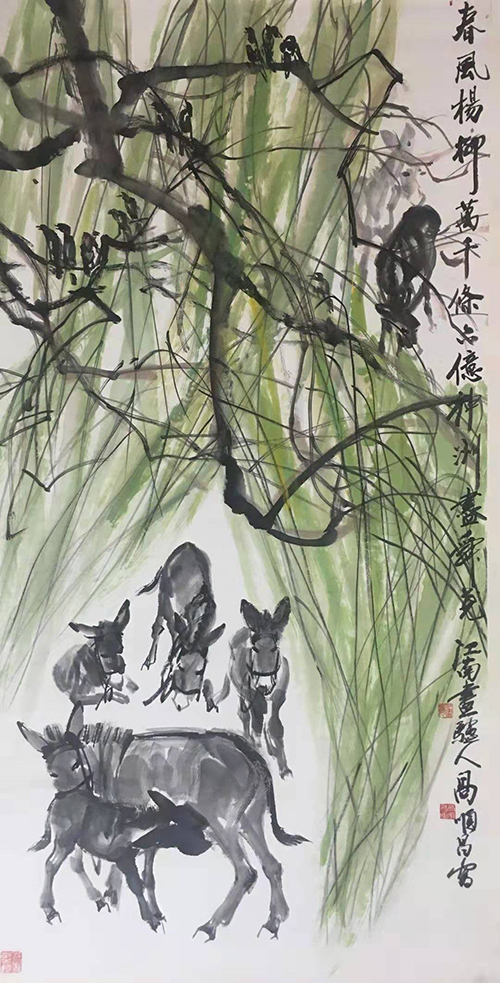 春風楊柳萬千條六億神洲盡舜堯 江南畫驢人順昌寫